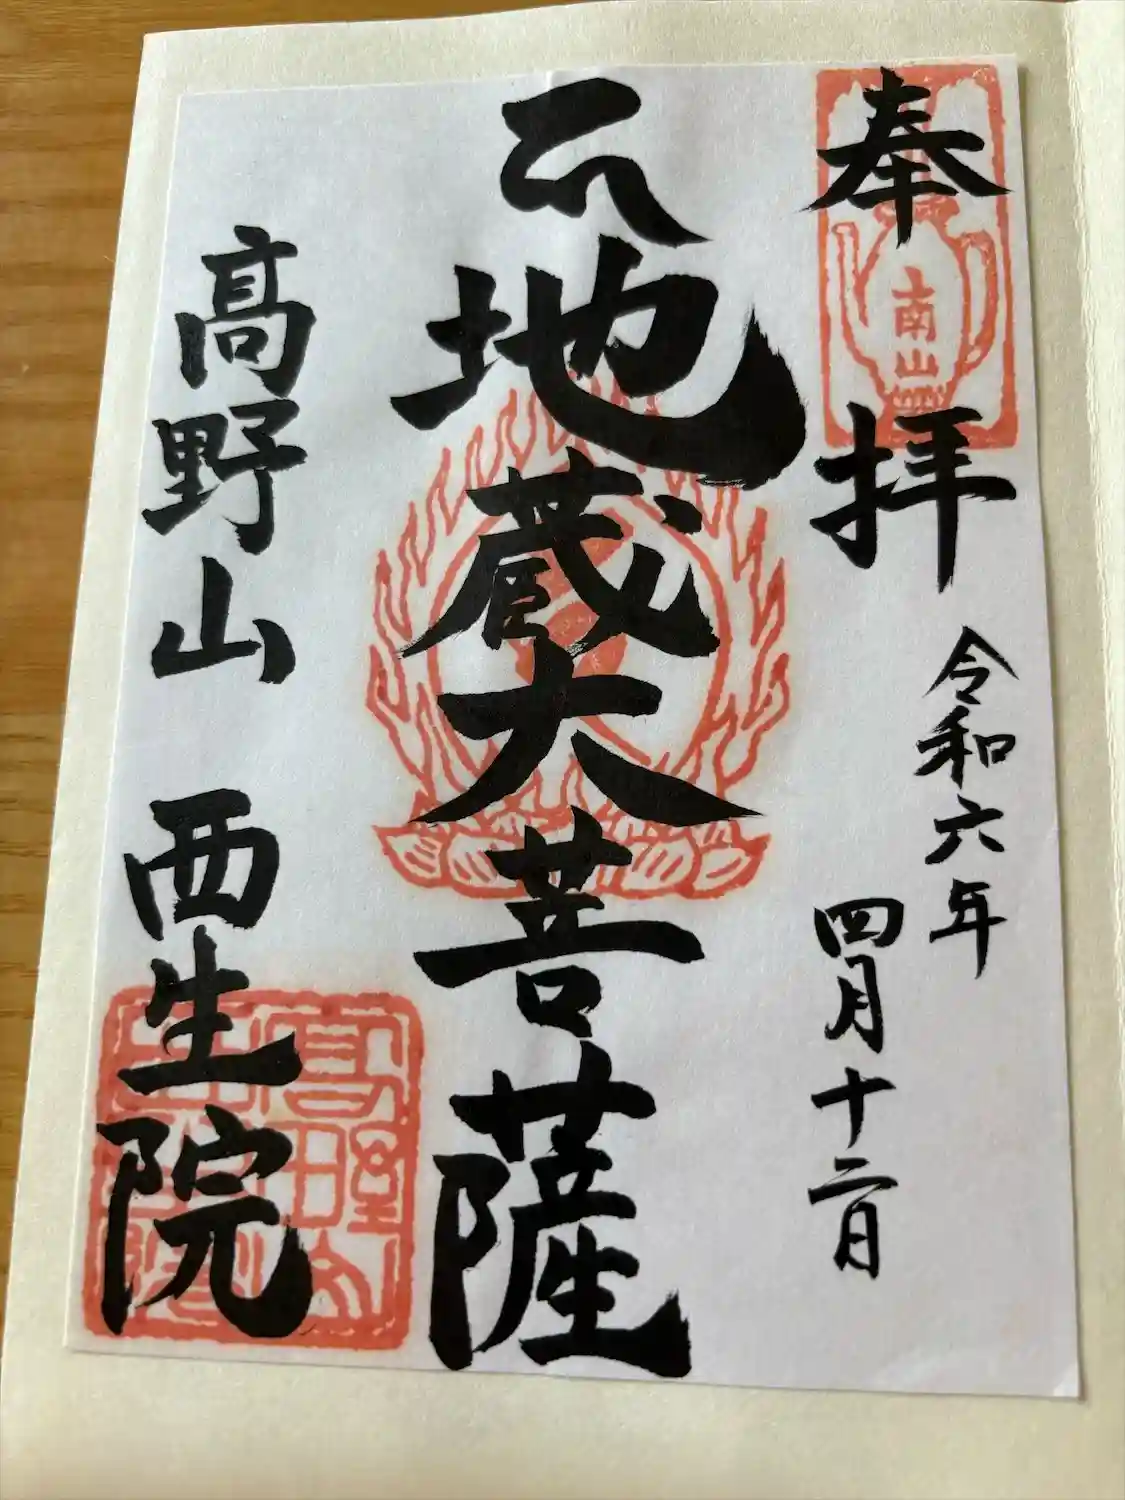 奉拝
南山
令和六年
四月十二日
地蔵大菩薩
髙野山 西生院